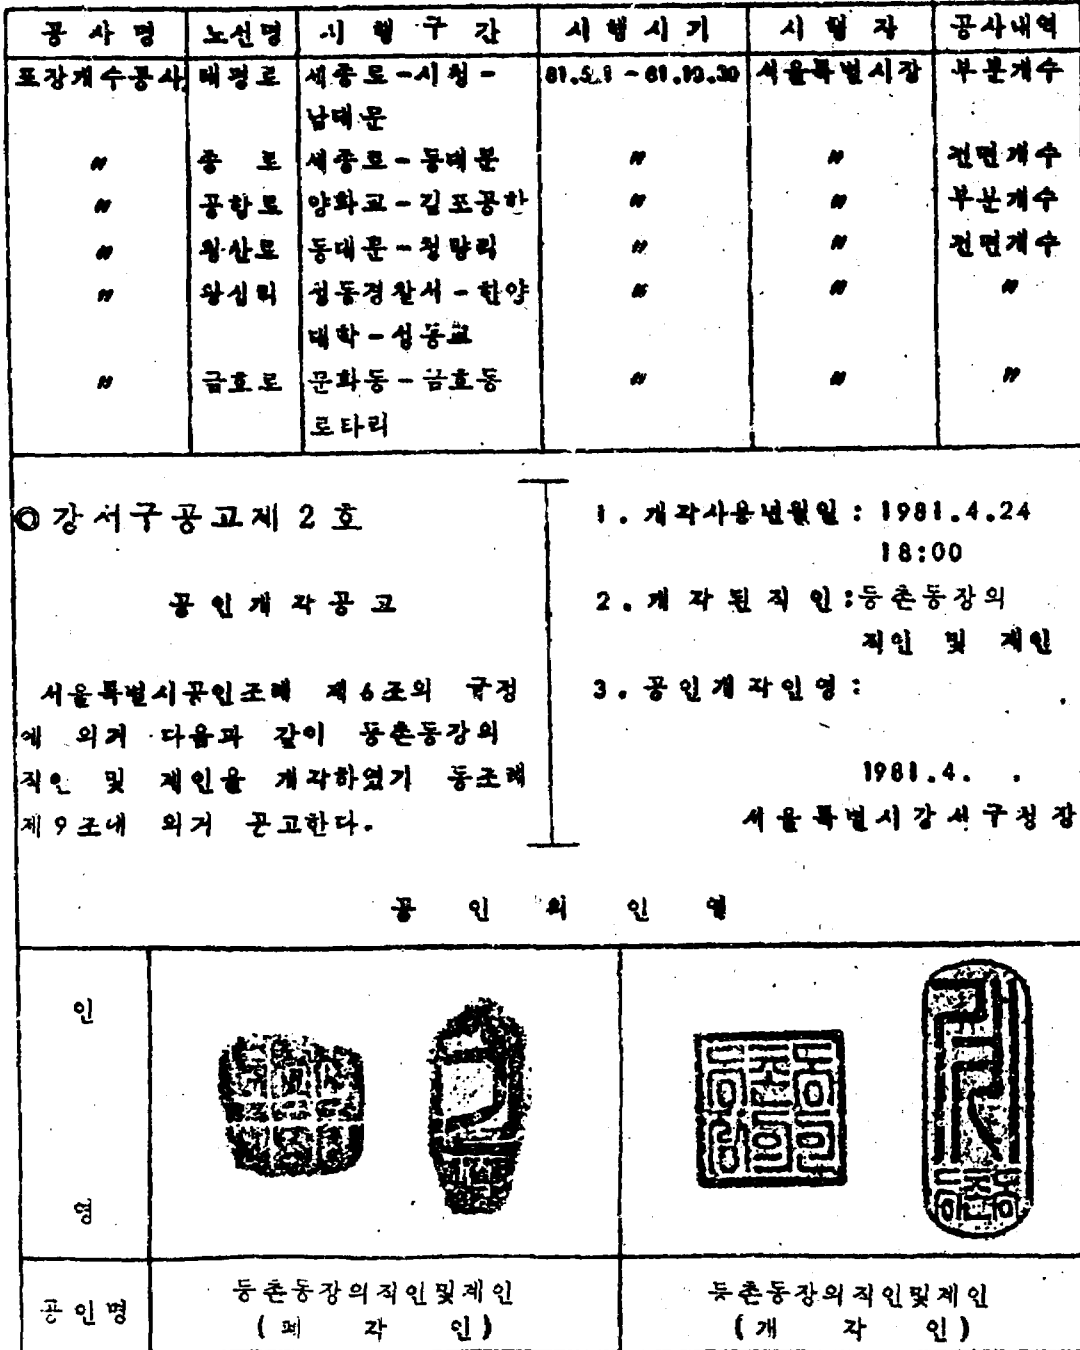 공사명 노선명 시행구간 시행시기 시행자 공사내역
포장개수공사 태평로 세종로-시청- 81.5.1 - 81.10.30 서울특별시장 부분개수
남대문
〃 종 로 세종로-동대문 〃 〃 전면개수
〃 공항로 양화교-김포공항 〃 〃 부분개수
〃 왕산로 동대문-청량리 〃 〃 전면개수
〃 왕십리 성동경찰서-한양 〃 〃 〃
대학-성동교
〃 금호로 문화동-금호동 〃 〃 〃
로타리
◎강서구공고제 2 호
공인개각공고
서울특별시공인조례 제 6조의 규정
에 의거 다음과 같이 등촌동장의
직인 및 계인을 개각하였기 동조례
제 9 조내 의거 공고한다.
1. 개각사용년월일 : 1981.4.24
18:00
2. 개각된직인:등촌동장의
직인 및 계인
3. 공인개각인영 :
1981.4. .
서울특별시강서구청장
공 인 의 인 영
인 영
등촌동장의직인
등촌동
공인명 등촌동장의직인및계인 등촌동장의직인및계인
(폐 각 인) (개 각 인)